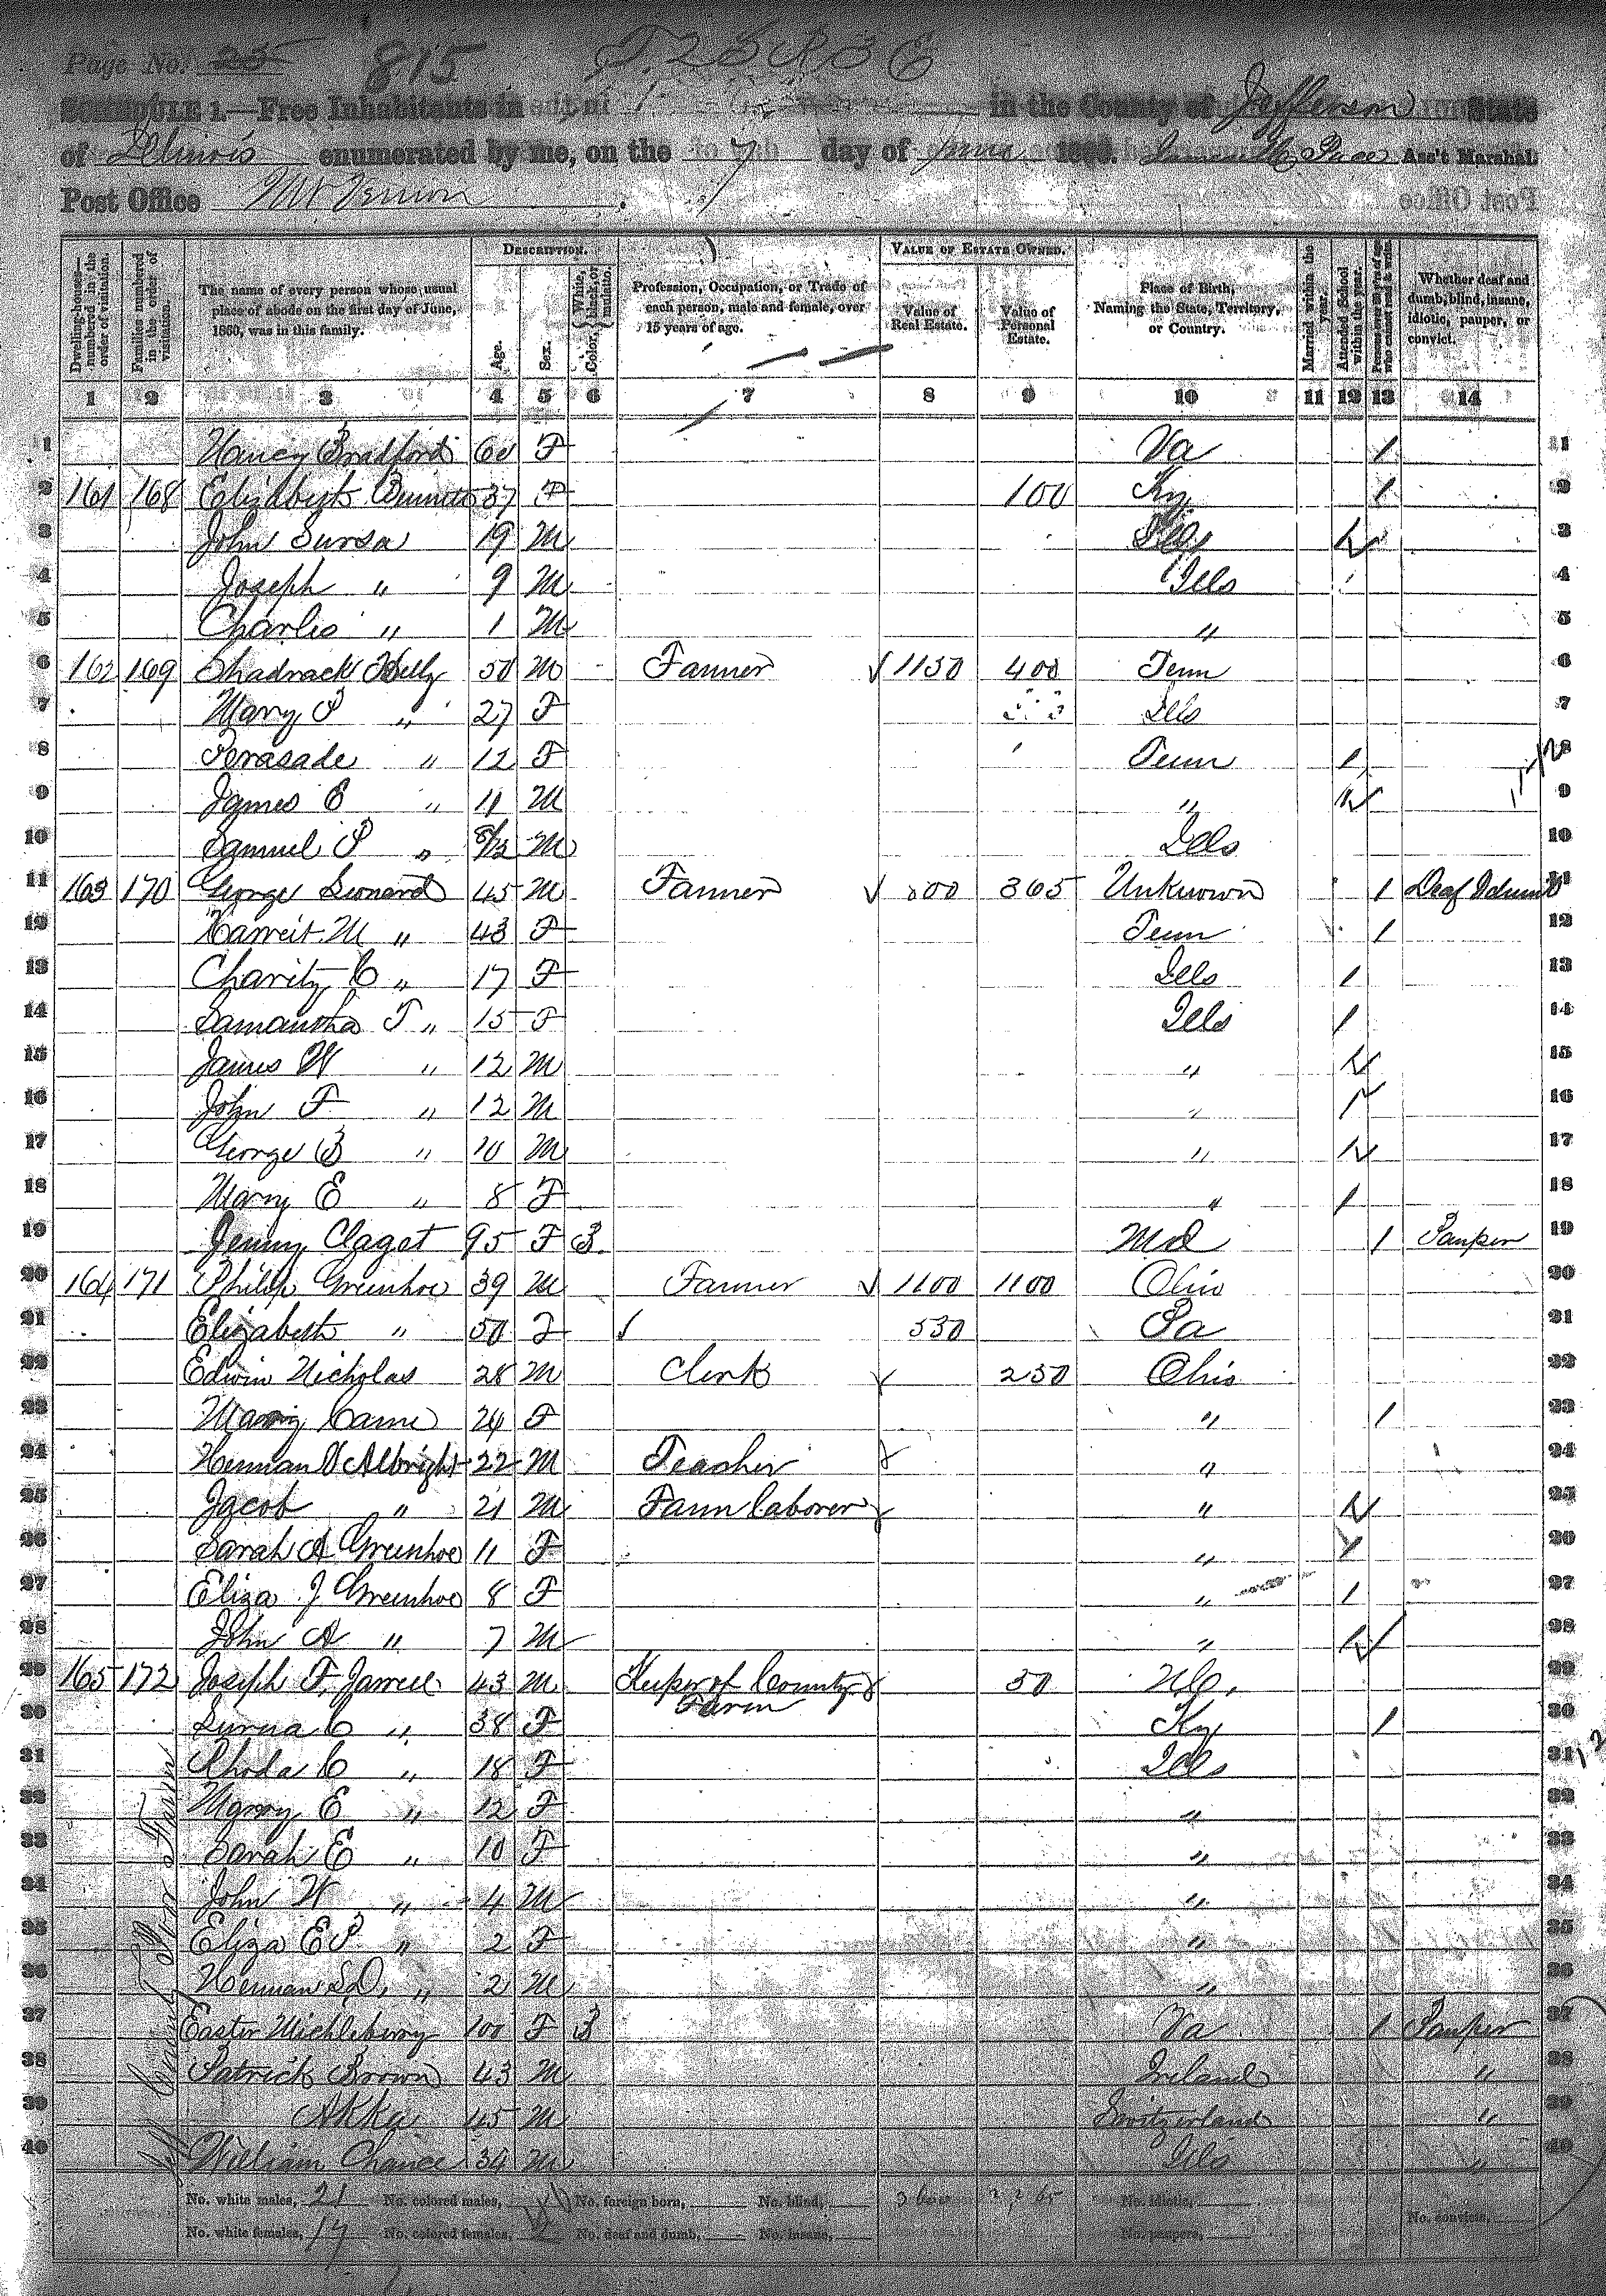 Page No. 25 815 T. 2 S R 3 E
SCHEDULE 1.—Free Inhabitants in in the County of Jefferson State
of Illinois enumerated by me, on the 7 day of June 1860. Pace Ass't Marshal.
Post Office Mt Vernon
Dwelling-houses—numbered in the order of visitation.
Families numbered in the order of visitation.
The name of every person whose usual place of abode on the first day of June, 1860, was in this family.
DESCRIPTION.
Age.
Sex.
Color, White, black, or mulatto.
Profession, Occupation, or Trade of each person, male and female, over 15 years of age.
VALUE OF ESTATE OWNED.
Value of Real Estate.
Value of Personal Estate.
Place of Birth, Naming the State, Territory, or Country.
Married within the year.
Attended School within the year.
Persons over 20 y'rs of age who cannot read & write.
Whether deaf and dumb, blind, insane, idiotic, pauper, or convict.
1 2 3 4 5 6 7 8 9 10 11 12 13 14
1 Nancy Bradford 60 F Va 1 1
2 161 168 Elizabeth 37 F 100 Ky 1 2
3 John Sursa 19 M Ills 1 3
4 Joseph " 9 M Ills 4
5 Charlis " 1 M " 5
6 162 169 Shadrack Kelly 50 M Farmer 1150 400 Tenn 6
7 Mary P " 27 F Ills 7
8 Perasade " 12 F Tenn 1 8
9 James E " 11 M " 1 9
10 Samuel P " 8/12 M Ills 10
11 163 170 George Leonard 45 M Farmer 800 365 Unknown 1 Deaf & dumb 11
12 Harreit M " 43 F Tenn 1 12
13 Charity C " 17 F Ills 1 13
14 Samantha T " 15 F Ills 1 14
15 James W " 12 M " 1 15
16 John F " 12 M " 1 16
17 George B " 10 M " 1 17
18 Mary E " 8 F " 1 18
19 Jenny Claget 95 F B Md 1 Pauper 19
20 164 171 Philip Greenhoe 39 M Farmer 1100 1100 Ohio 20
21 Elizabeth " 50 F 530 Pa 21
22 Edwin Nicholas 28 M Clerk 250 Ohio 22
23 Mary Came 24 F " 1 23
24 Herman V Albright 22 M Teacher " 24
25 Jacob " 21 M Farm laborer " 1 25
26 Sarah A Greenhoe 11 F " 1 26
27 Eliza J Greenhoe 8 F " 1 27
28 John A " 7 M " 1 28
29 165 172 Joseph F. Jarrell 43 M Keeper of County Farm 50 N C, 29
30 Surena C " 38 F Ky 1 30
31 Rhoda C " 18 F Ills 31
32 Mary E " 12 F " 32
33 Sarah E " 10 F " 33
34 John W " 4 M " 34
35 Eliza E P " 2 F " 35
36 Herman S. D. " 2 M " 36
37 Easter Michleberry 100 F B Va 1 Pauper 37
38 Patrick Brown 43 M Ireland " 38
39 Akka 45 M Switzerland " 39
40 William Chance 34 M Ills " 40
County Poor Farm
No. white males, 21 No. colored males, No. foreign born, No. blind, No. idiotic,
No. white females, 17 No. colored females, 2 No. deaf and dumb, No. insane, No. paupers, No. convicts,